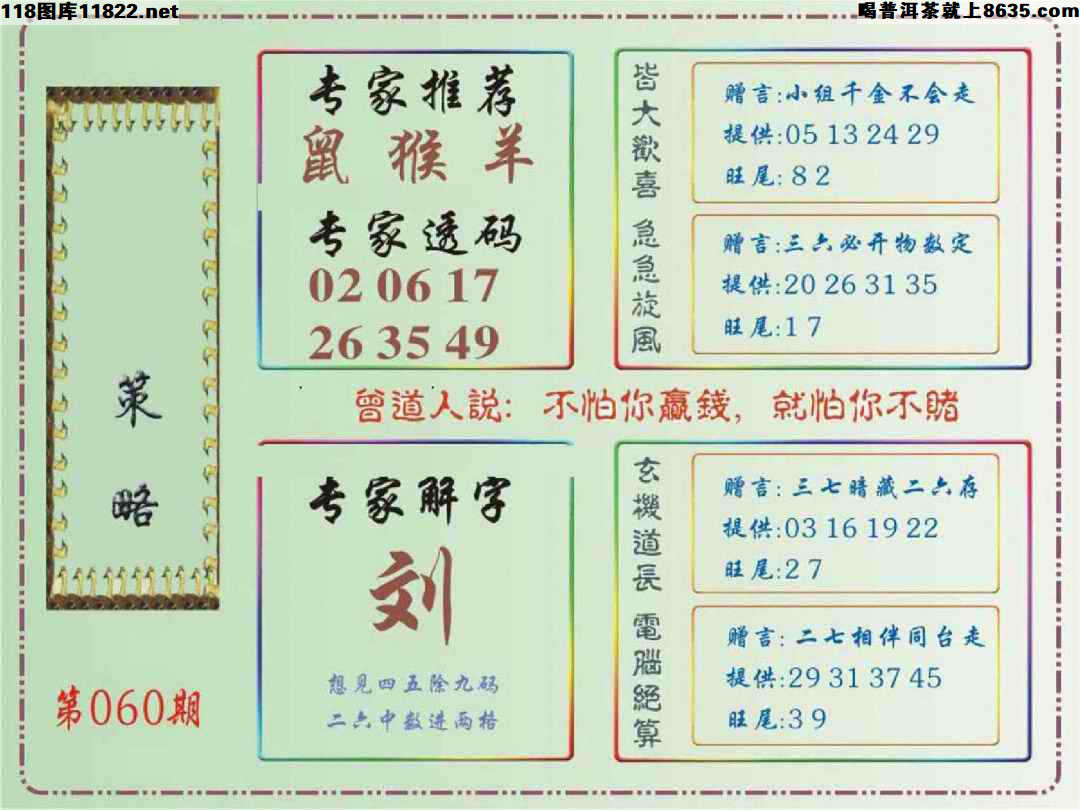 118图库11822.net
喝普洱茶就上8635.com
策略
第060期
专家推荐
鼠 猴 羊
专家透码
02 06 17
26 35 49
皆大歡喜
赠言:小组千金不会走
提供:05 13 24 29
旺尾: 8 2
急急旋風
赠言:三六必开物数定
提供:20 26 31 35
旺尾:1 7
曾道人説: 不怕你赢錢, 就怕你不賭
专家解字
刘
想见四五除九码
二六中数进两格
玄機道長
赠言: 三七暗藏二六存
提供:03 16 19 22
旺尾:2 7
電腦絕算
赠言: 二七相伴同台走
提供:29 31 37 45
旺尾:3 9